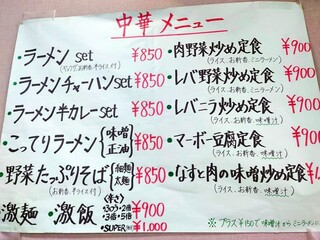 中華メニュー
・ラーメン set ¥850
(ライス、お新香付)
・ラーメンチャーハンset ¥850
・ラーメン半カレーset ¥850
・こってりラーメン 味噌 正油 ¥850
・野菜たっぷりそば 細麺 太麺 ¥850
(お新香、ライス付)
激麺 ・激飯 ¥900
(辛さ)
・SUPER ¥1,000
・肉野菜炒め定食 ¥900
(ライス、お新香、ミニラーメン)
・レバ野菜炒め定食 ¥900
(ライス、お新香、ミニラーメン)
・レバニラ炒め定食 ¥900
(ライス、お新香、味噌汁)
・マーボー豆腐定食 ¥900
(ライス、お新香、味噌汁)
・なすと肉の味噌炒め定食 ¥1
(ライス、お新香、味噌汁)
※プラス¥150で味噌汁からミニラーメン